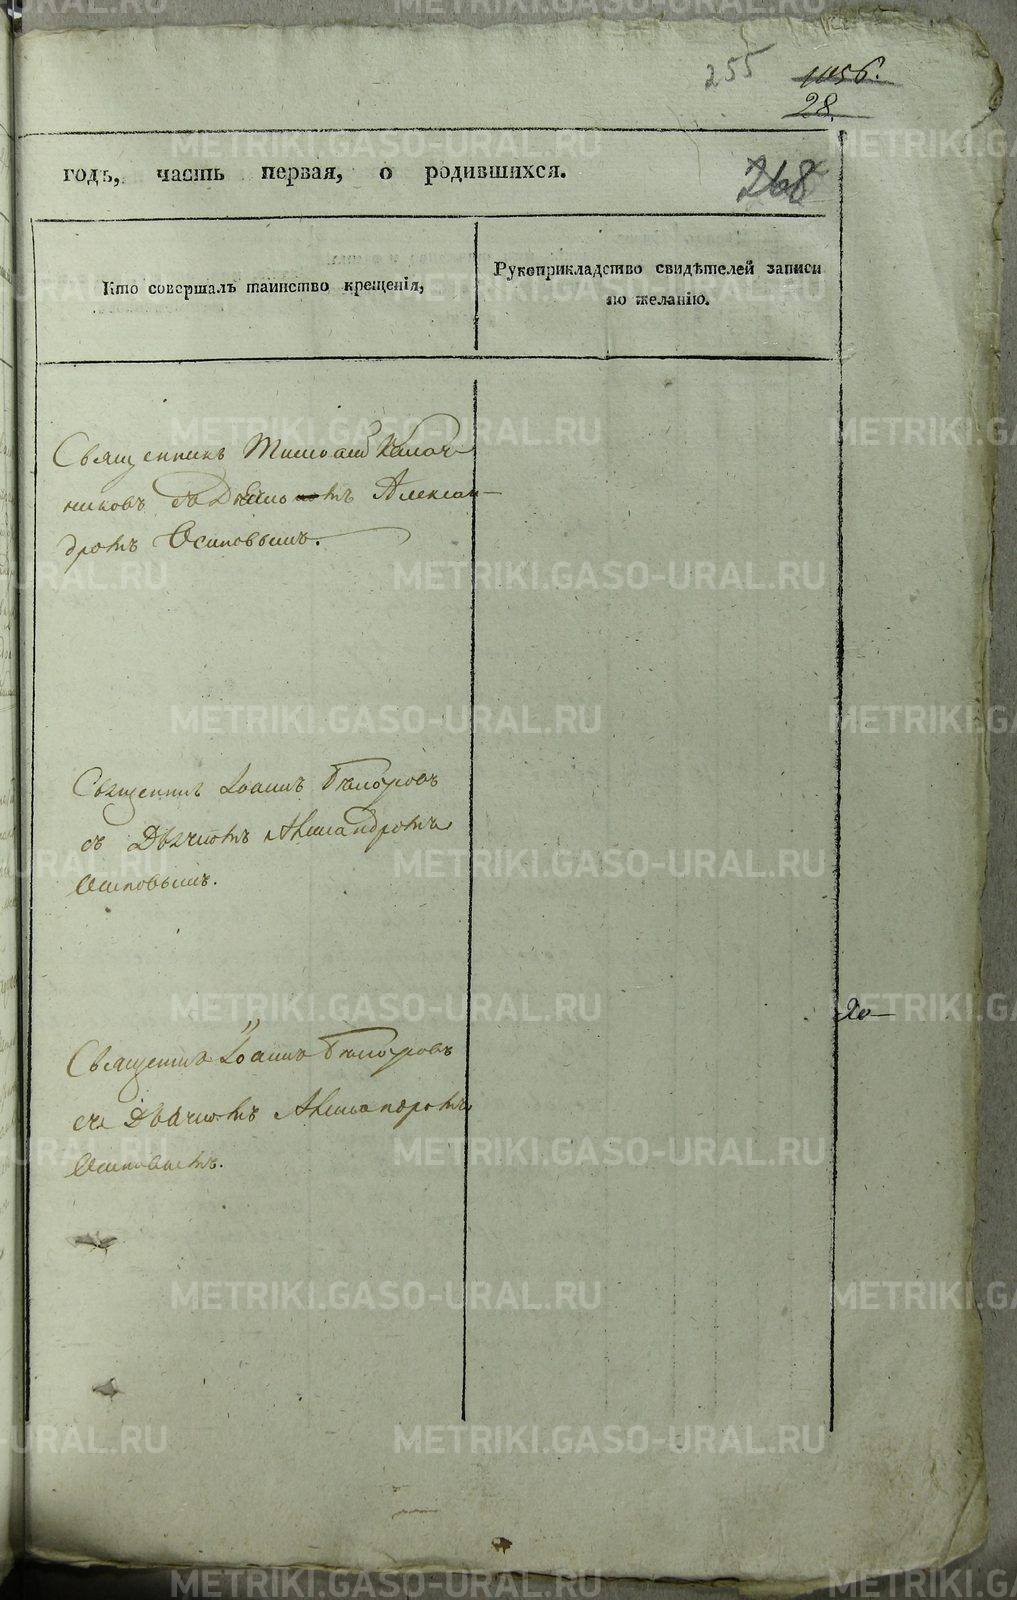 255
1056.
28.
268
годъ, часть первая, о родившихся.
Кто совершалъ таинство крещенія,
Рукоприкладство свидѣтелей записи
по желанію.
Священникъ Калач-
никовъ съ Алексан-
дромъ Осиповымъ.
Священникъ Іоаннъ
съ Дьячкомъ Александромъ
Осиповымъ.
Священникъ Іоаннъ
съ Дьячкомъ Александромъ
Осиповымъ.
METRIKI.GASO-URAL.RU